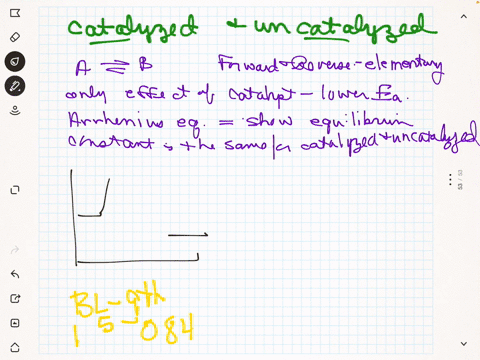 catalyzed & uncatalyzed
A ⇌ B Forward & Reverse - elementary
only effect of catalyst - lower Ea.
Arrhenius eq. = show equilibrium
constant is the same for catalyzed & uncatalyzed
53 / 53
BL - 9th
15 - 084